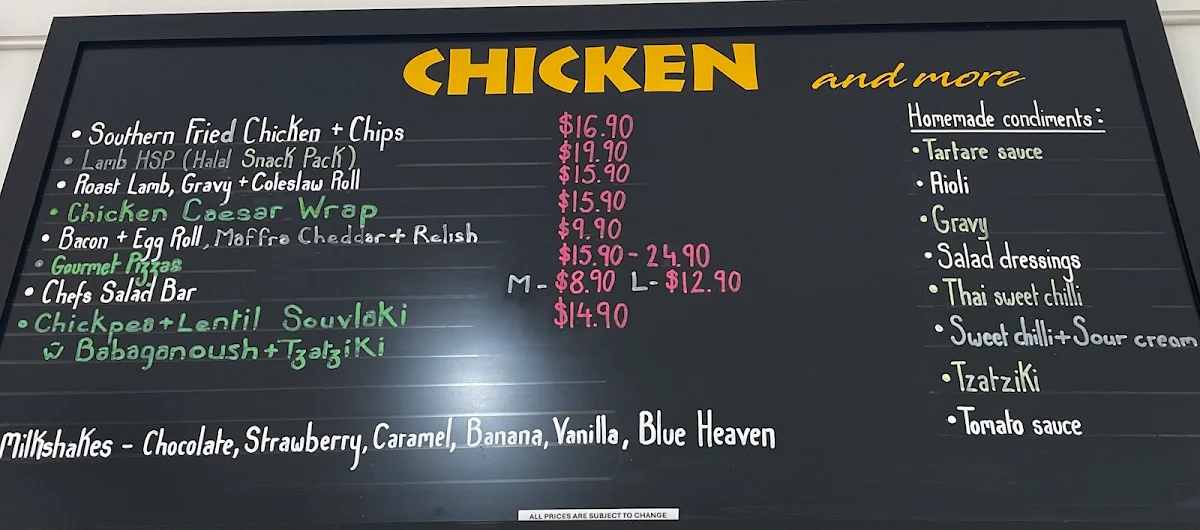 CHICKEN and more
• Southern Fried Chicken + Chips $16.90
• Lamb HSP (Halal Snack Pack) $19.90
• Roast Lamb, Gravy + Coleslaw Roll $15.90
• Chicken Caesar Wrap $15.90
• Bacon + Egg Roll, Maffra Cheddar + Relish $9.90
• Gourmet Pizzas $15.90 - 24.90
• Chefs Salad Bar M - $8.90 L - $12.90
• Chickpea + Lentil Souvlaki $14.90
w̄ Babaganoush + Tzatziki
Milkshakes - Chocolate, Strawberry, Caramel, Banana, Vanilla, Blue Heaven
Homemade condiments:
• Tartare sauce
• Aioli
• Gravy
• Salad dressings
• Thai sweet chilli
• Sweet chilli + Sour cream
• Tzatziki
• Tomato sauce
ALL PRICES ARE SUBJECT TO CHANGE